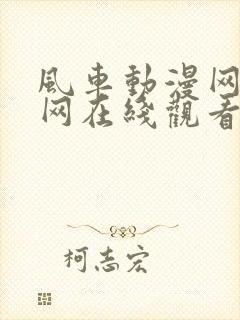 風車動漫网
网在綫觀看
柯志宏